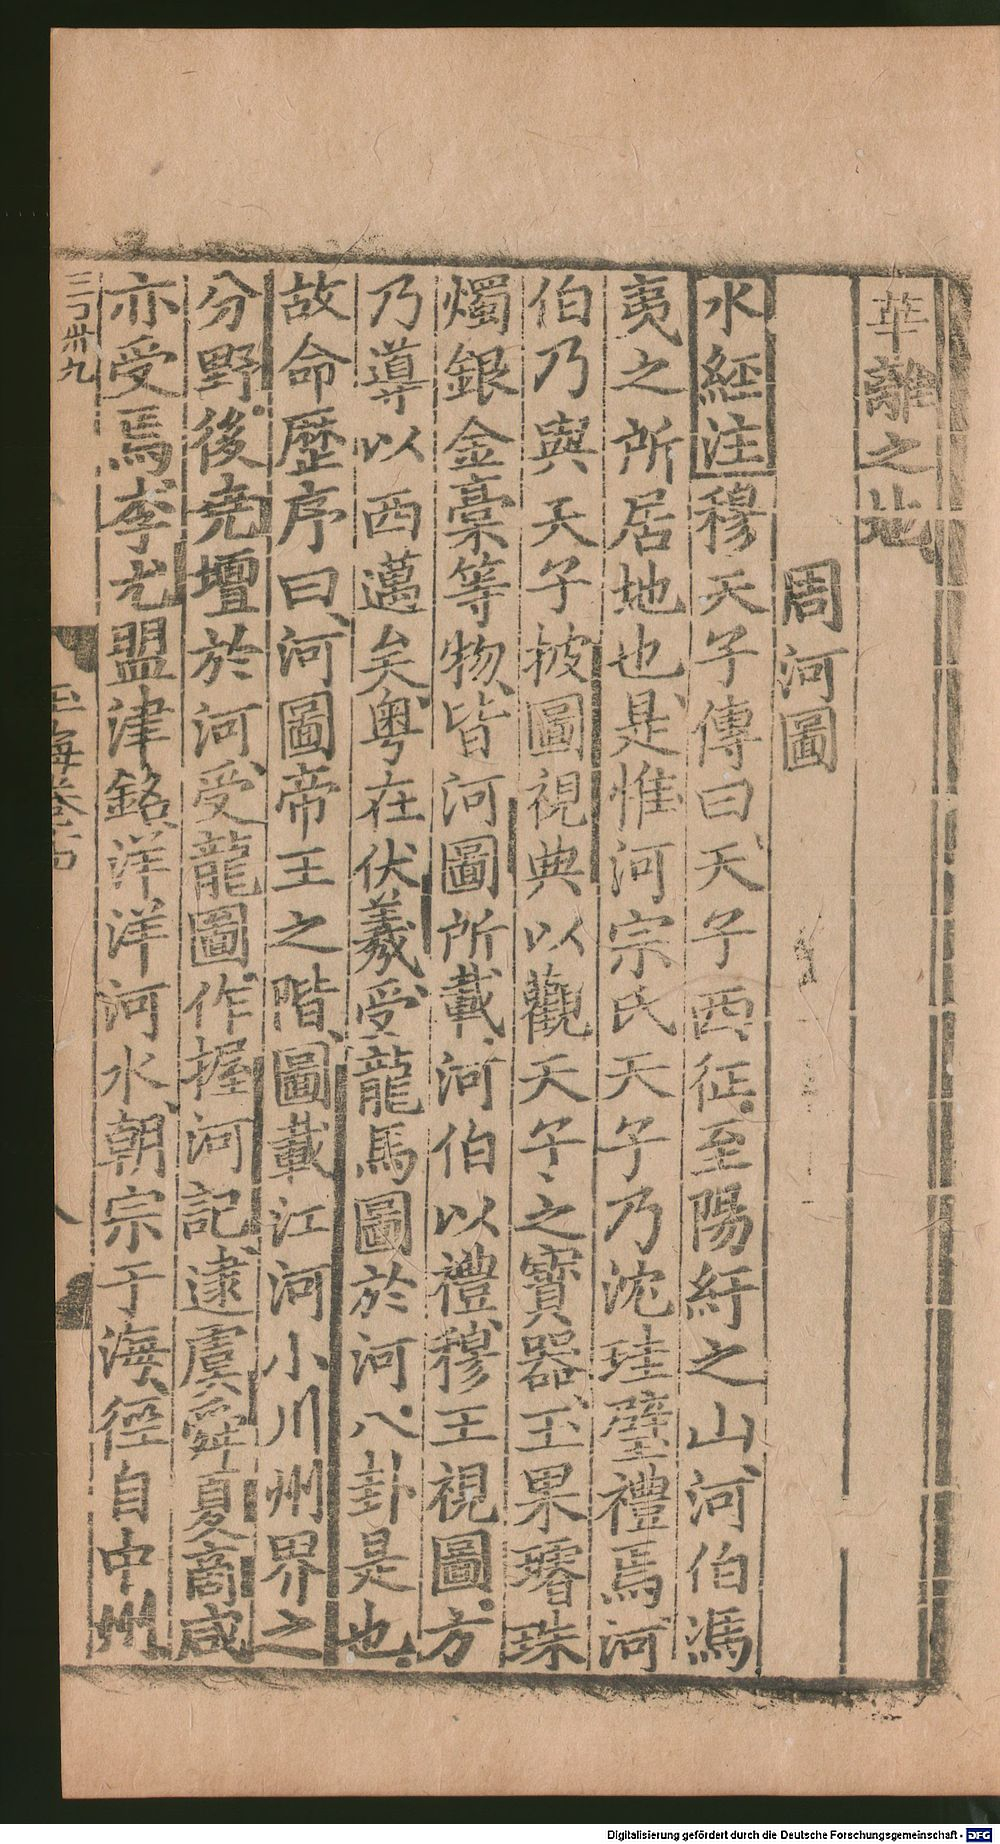 華離之地
周河圖
水經注穆天子傳曰天子西征至陽紆之山河伯馮
夷之所居地也是惟河宗氏天子乃沈珪璧禮焉河
伯乃與天子披圖視典以觀天子之寶器玉果璿珠
燭銀金膏等物皆河圖所載河伯以禮穆王視圖方
乃導以西邁矣粤在伏羲受龍馬圖於河八卦是也
故命歷序曰河圖帝王之階圖載江河小川州界之
分野後堯壇於河受龍圖作握河記逮虞舜夏商咸
亦受焉李尤盟津銘洋洋河水朝宗于海徑自中州
三丁卅九
玉海卷十四
Digitalisierung gefördert durch die Deutsche Forschungsgemeinschaft - DFG